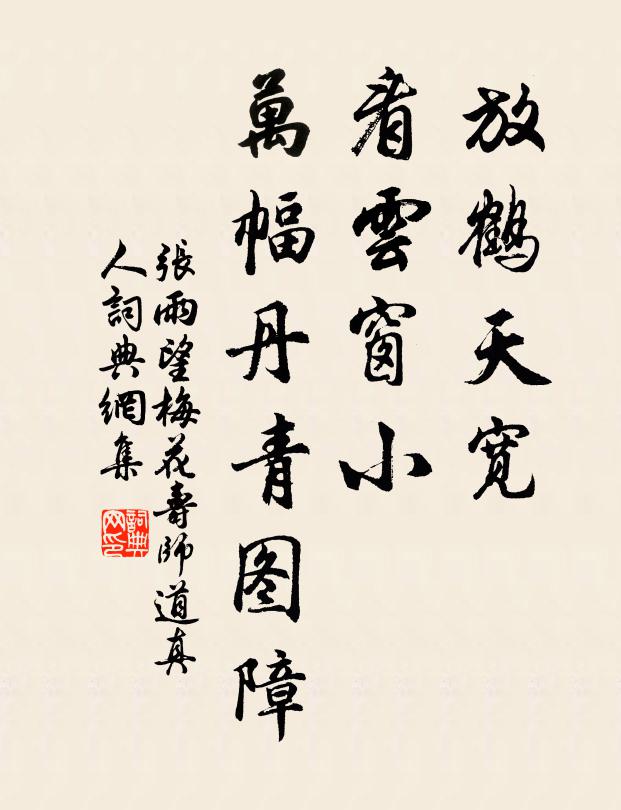 放鶴天宽
看雲窗小
萬幅丹青图障
張雨望梅花壽師道真
人詞典網集
詞典
网印